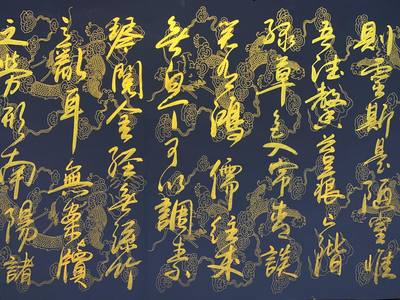 則靈斯是陋室惟
吾德馨苔痕上階
綠草色入帘青談
笑有鴻儒往來
無白丁可以調素
琴閱金經無絲竹
之亂耳無案牘
之勞形南陽諸